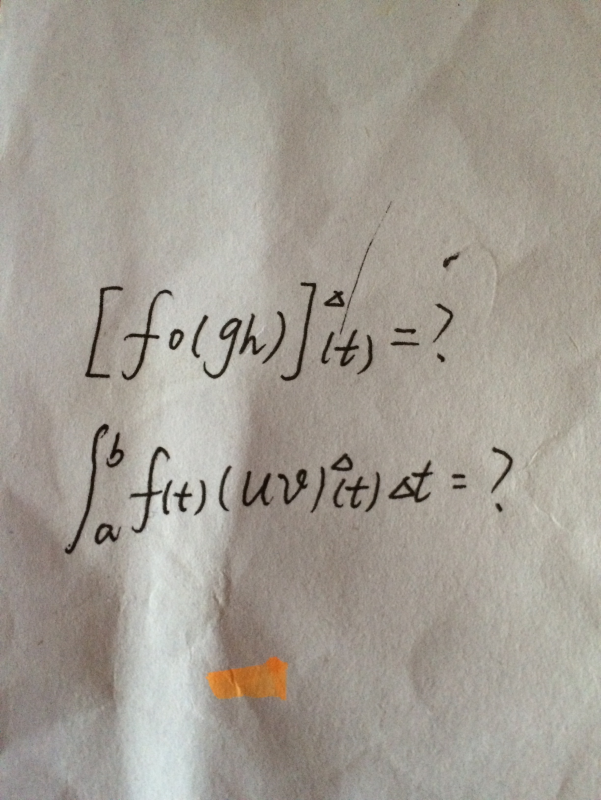 [f∘(gh)]^Δ(t) = ?
∫_a^b f(t)(uv)^Δ(t) Δt = ?